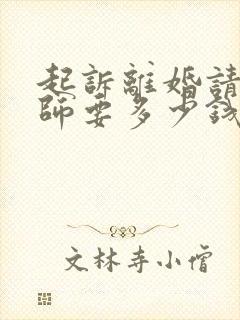 起訴離婚請
師要多少錢
文林寺小僧